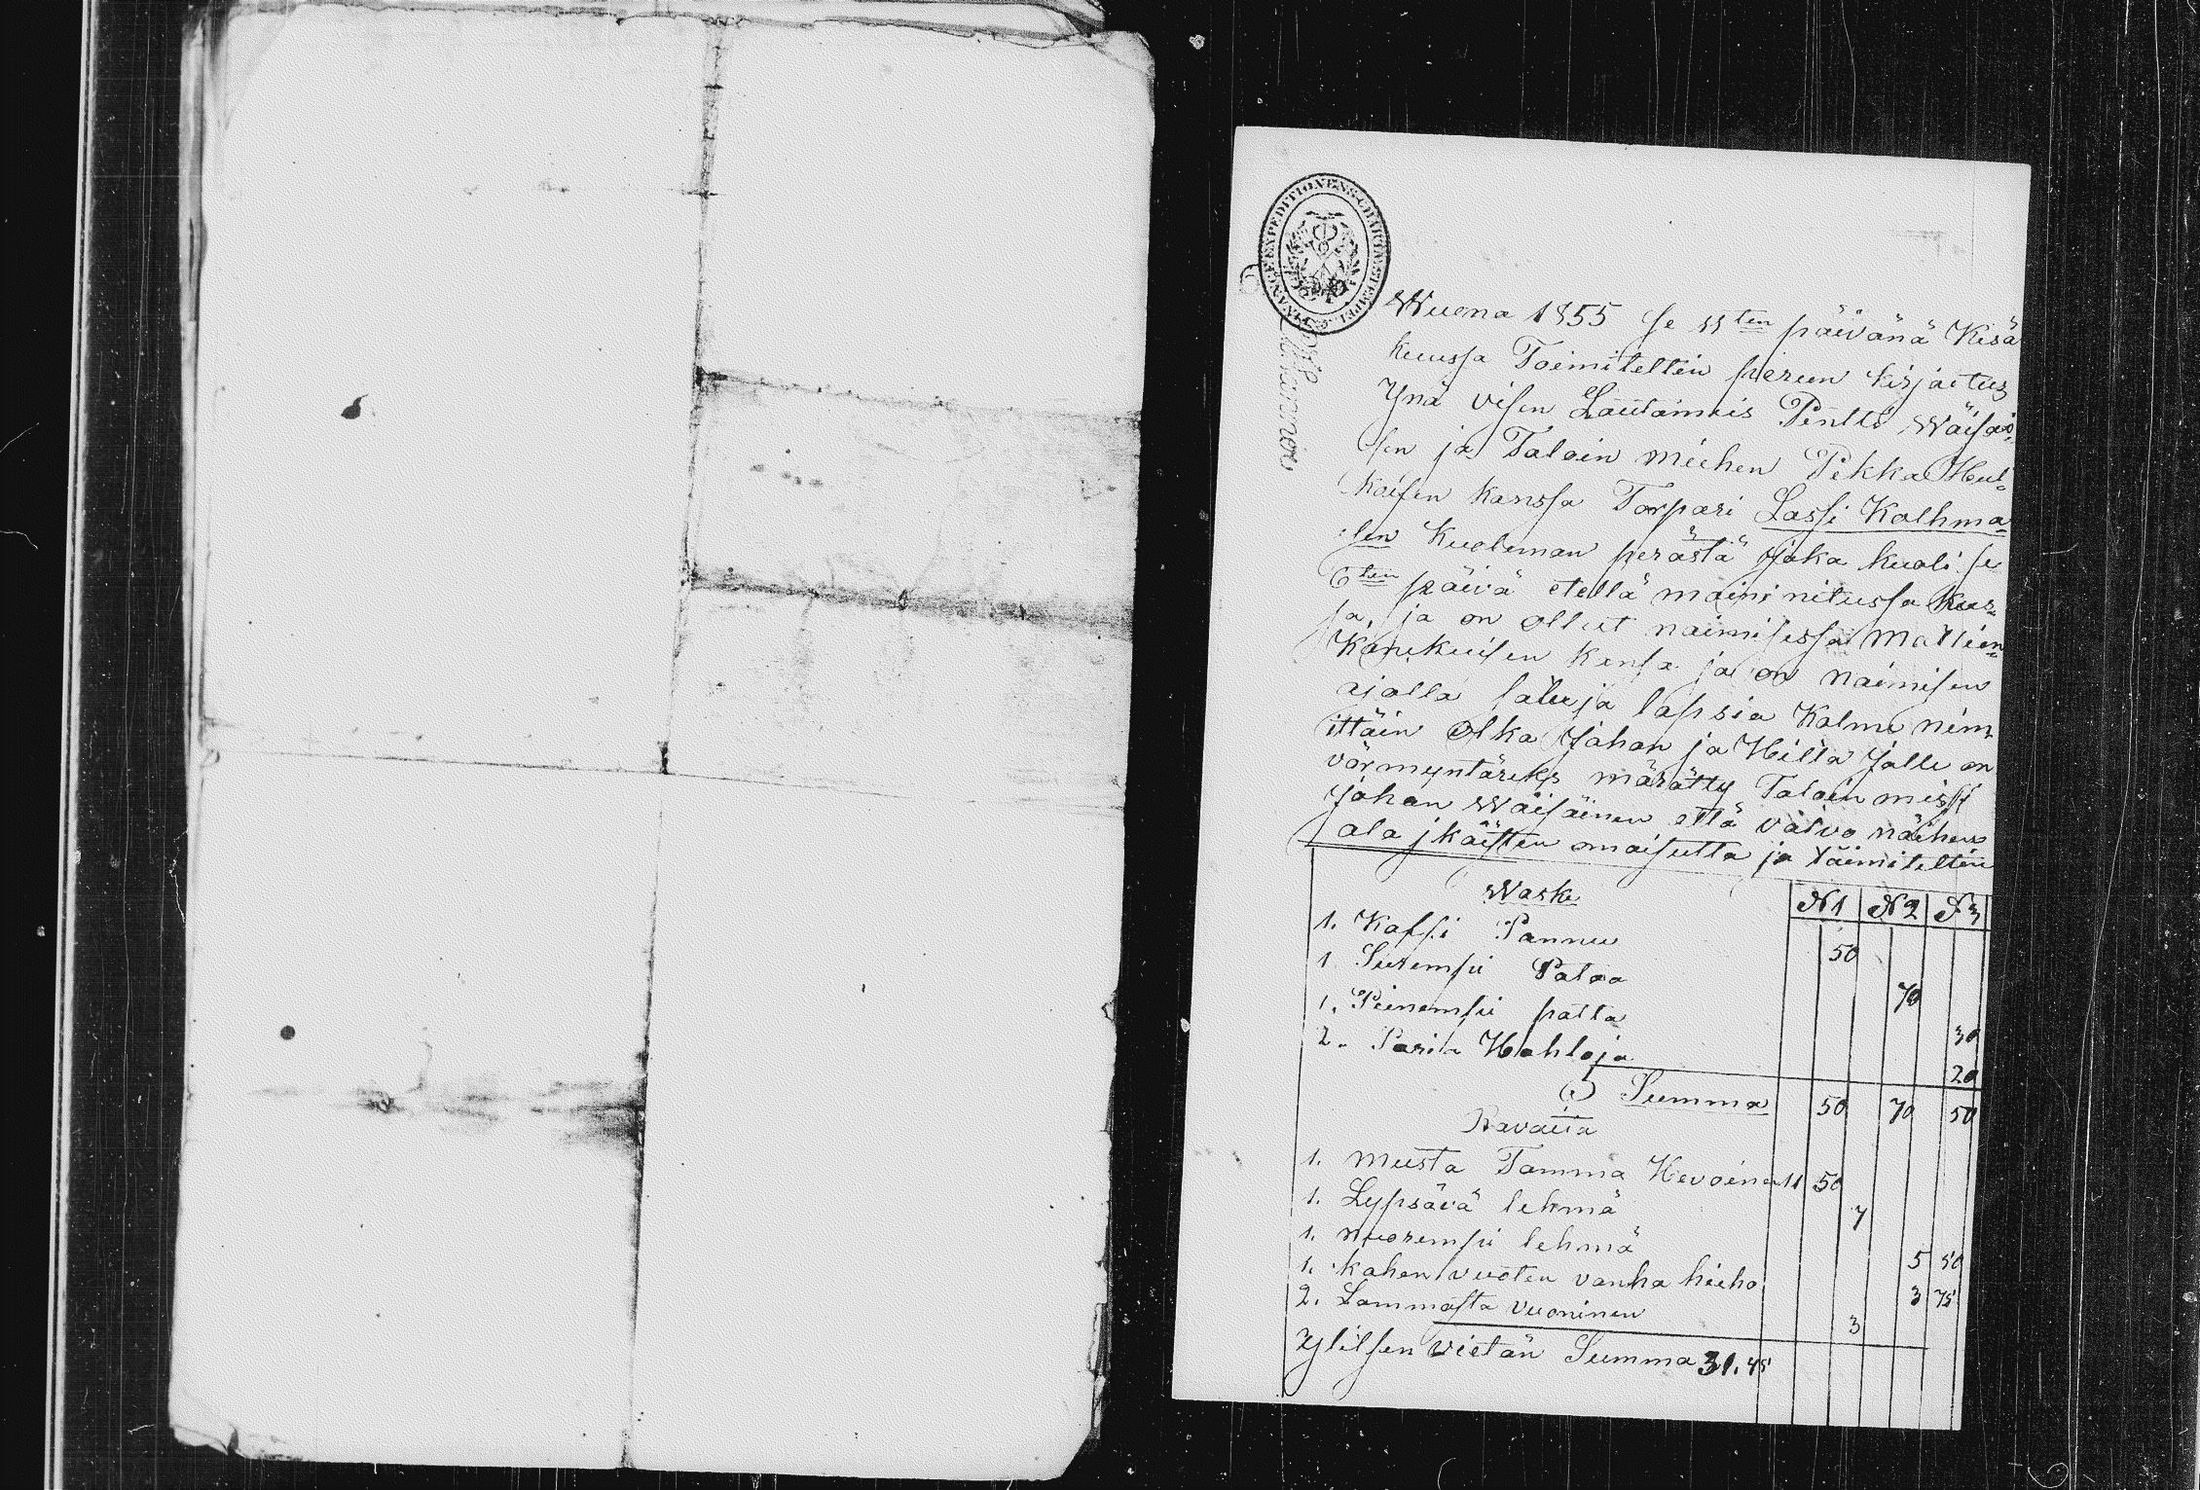 FINANCE EXPEDITIONENS CHARTÆ STEMPEL
Wuona 1855 se 11ten päivänä Kesä
kuussa Toimiteltin perun kirjoitus
Ynä visin Lautamies Pentti Wäisäi-
sen ja Taloin miehen Pekka Hul-
koisen kanssa Torpari Lassi Kolhma-
isen Kuoleman perästä Joka kuoli se
6ten päivä etellä maini nitussa kuus-
sa, ja on ollut naimisessa Mallien
Kanikuisen kansa ja on naimisen
ajalla lapsia Kolme nim
ittäin Olka Johan ja Hilla Jolle on
vörmyntäreks märätty Taloin
Johan Wäisäinen että valvo näihen
ala jkäisten omaisutta ja täimiteltin
Waske N1 N2 N3
1. Kaffi Pannu 50
1 Surempi Pataa 70
1. Pienempi patta 30
2. Paria Hahloja 20
5 Summa 50 70 50
Ravaita
1. musta Tamma Hevoinen 11 50
1. Lypsävä lehmä 7
1. nuorempi lehmä 5 50
1. kahen vuoten vanha hieho 3 75
2. Lammasta vuoninen 3
Ylitsen vietän Summa 31.45